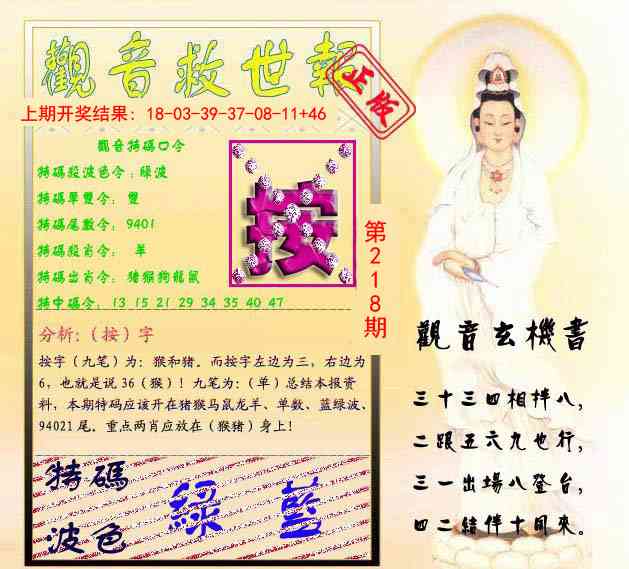 觀音救世報
正版
上期开奖结果：18-03-39-37-08-11+46
觀音特碼口令
特碼殺波色令：綠波
特碼單雙令： 雙
特碼尾數令： 9401
特碼殺肖令： 羊
特碼出肖令： 猪猴狗龍鼠
特中碼令： 13 15 21 29 34 35 40 47
按
第218期
分析:（按）字
按字（九笔）为：猴和猪。而按字左边为三，右边为
6，也就是说 36（猴）！九笔为：（单）总结本报资
料，本期特码应该开在猪猴马鼠龙羊、单数、蓝绿波、
94021 尾。重点两肖应放在（猴猪）身上！
特碼
波色
綠 藍
觀音玄機書
三十三四相拌八，
二跟五六九也行，
三一出場八登台，
四二結伴十同來。